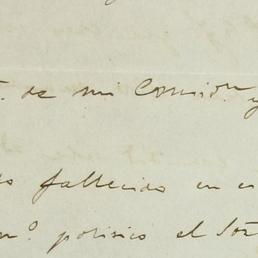 de mi Comision y
fallecido en
politico el Sor